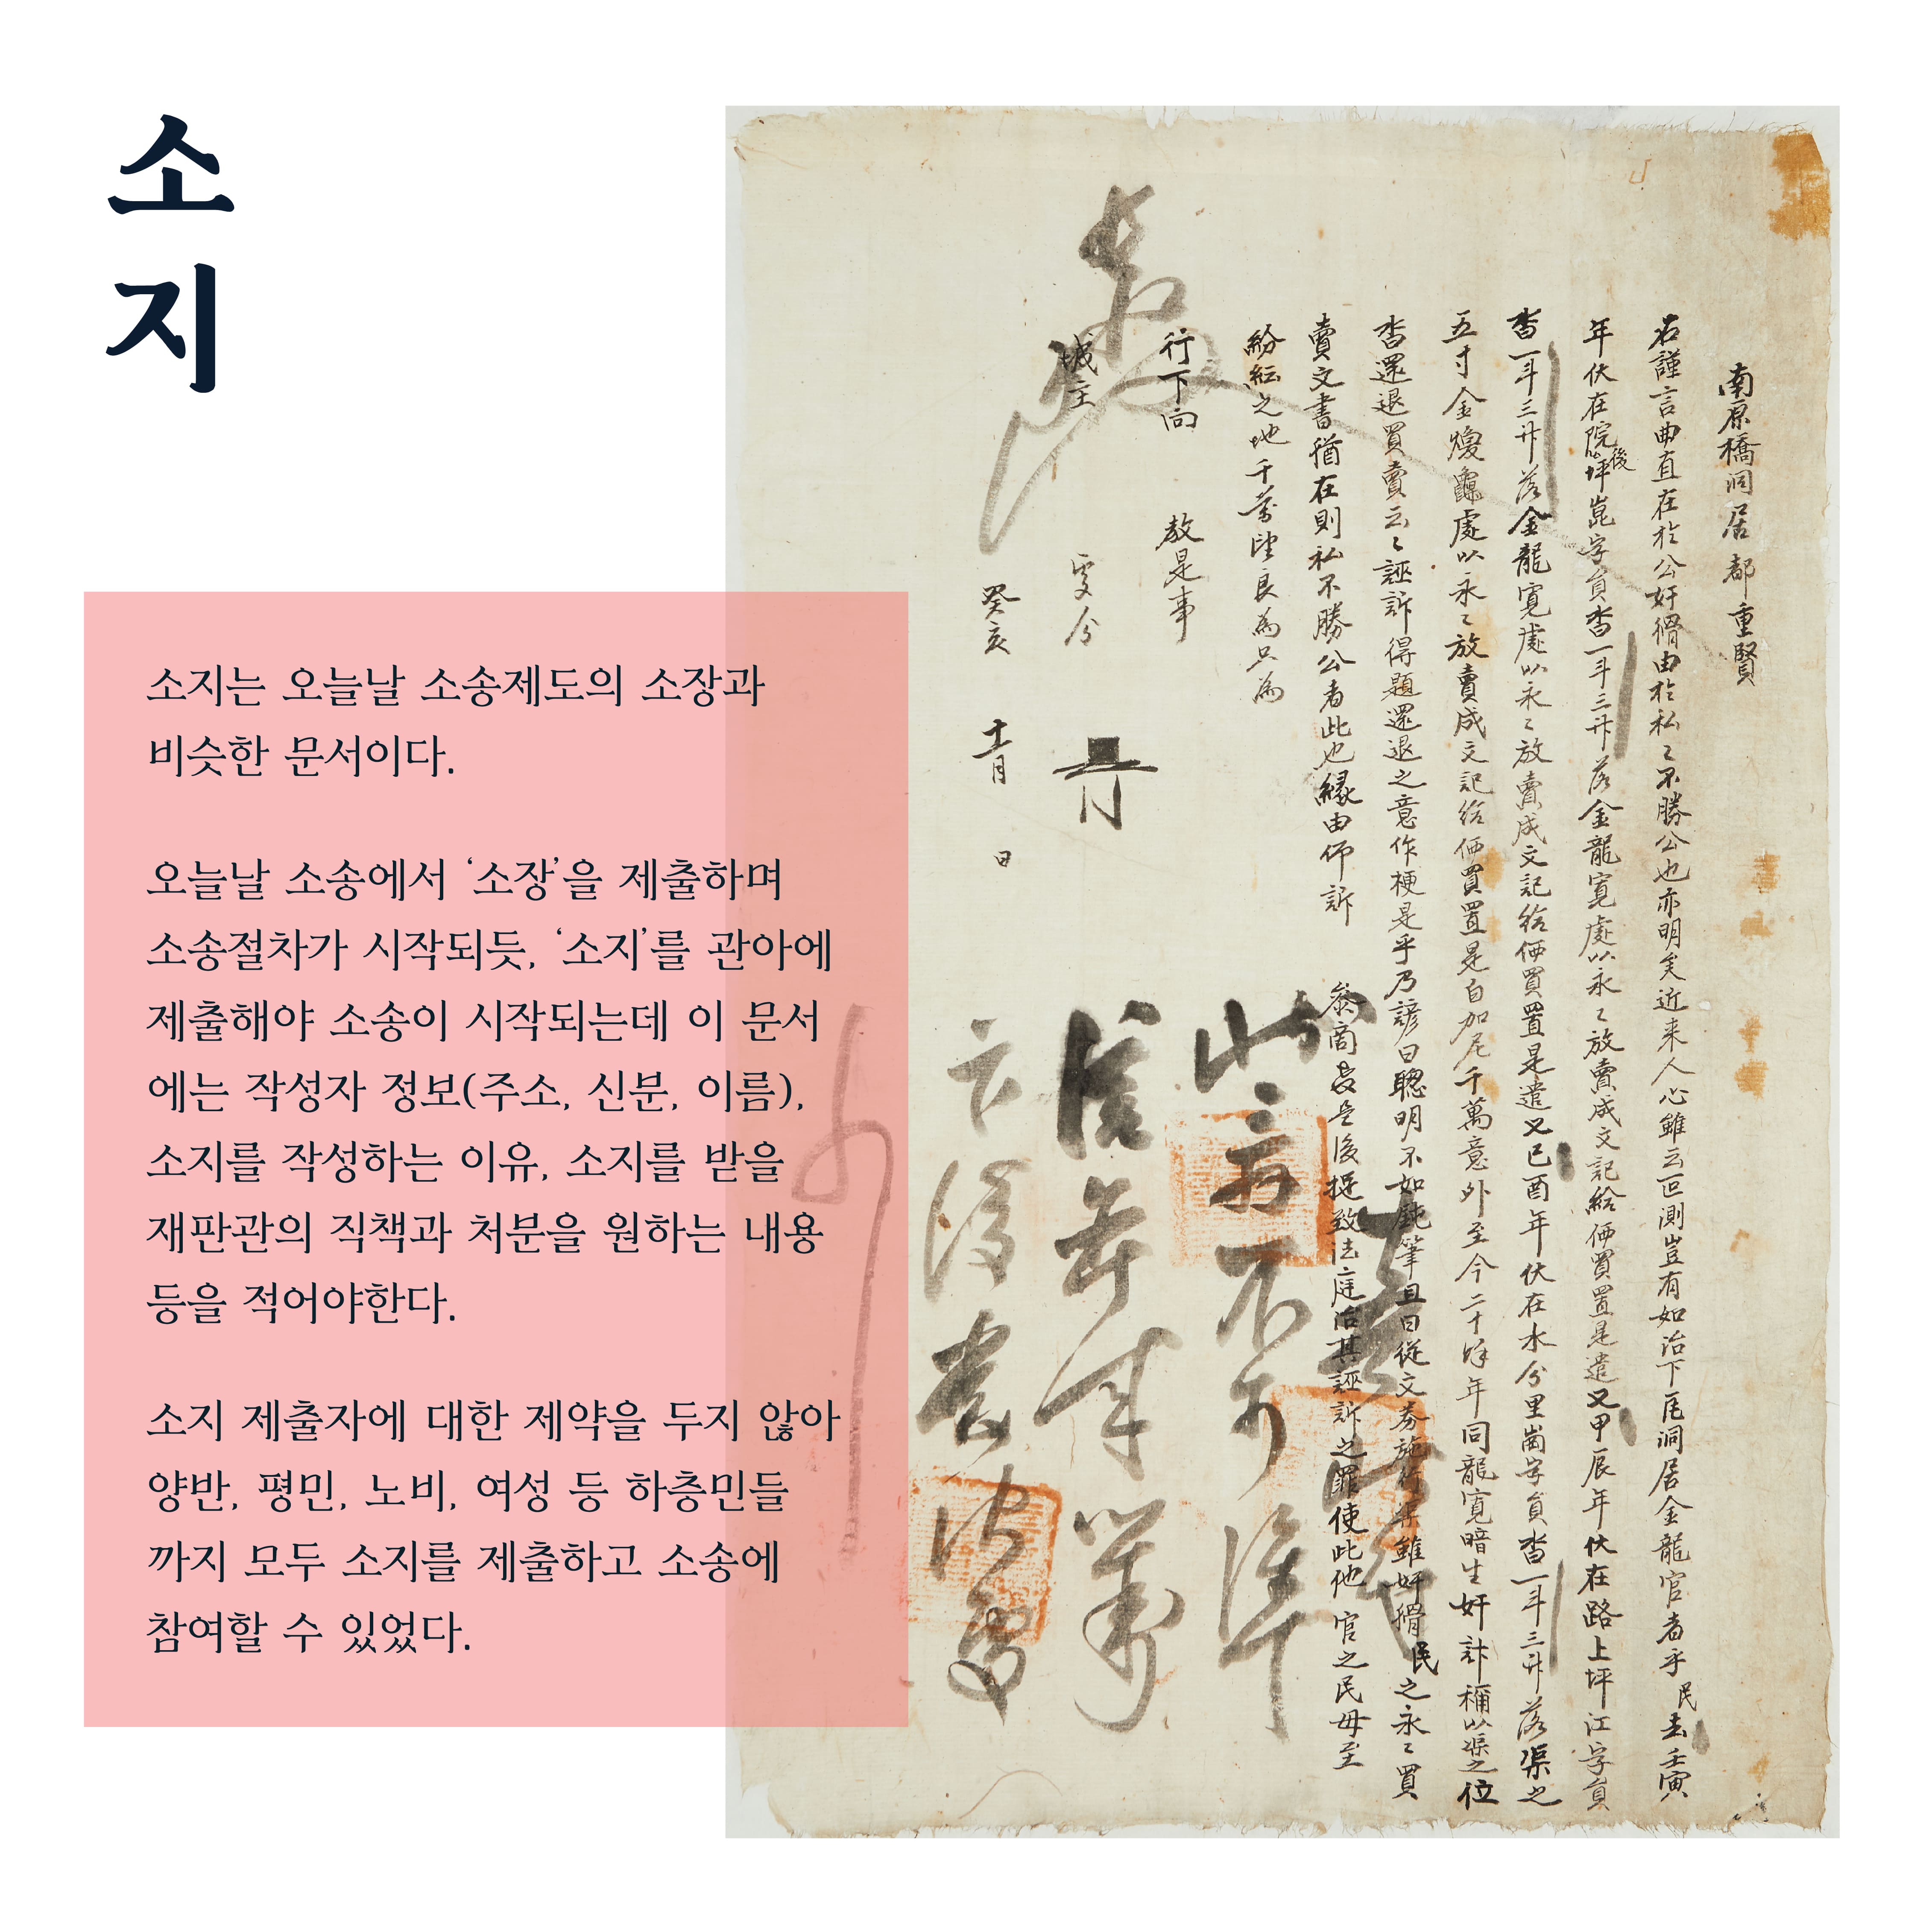 소
지
소지는 오늘날 소송제도의 소장과
비슷한 문서이다.
오늘날 소송에서 ‘소장’을 제출하며
소송절차가 시작되듯, ‘소지’를 관아에
제출해야 소송이 시작되는데 이 문서
에는 작성자 정보(주소, 신분, 이름),
소지를 작성하는 이유, 소지를 받을
재판관의 직책과 처분을 원하는 내용
등을 적어야한다.
소지 제출자에 대한 제약을 두지 않아
양반, 평민, 노비, 여성 등 하층민들
까지 모두 소지를 제출하고 소송에
참여할 수 있었다.
南原橋洞居都重賢
右謹言曲直在於公奸猾由於私〻不勝公也亦明矣近来人心雖云叵測豈有如治下尾洞居金龍官者乎民去壬寅
年伏在院後坪崑字員畓一斗三升落金龍寬處以永〻放賣成文記給価買置是遣又甲辰年伏在路上坪江字員
畓一斗三升落金龍寬處以永〻放賣成文記給価買置是遣又己酉年伏在水分里崗字員畓一斗三升落渠之
五寸金煥龜處以永〻放賣成文記給価買置是白加尼千萬意外至今二十餘年同龍寬暗生奸計稱以渠之位
畓還退買賣云〻誣訴得題還退之意作梗是乎乃諺曰聰明不如鈍筆且曰從文券施行渠雖奸猾民之永〻買
賣文書猶在則私不勝公者此也緣由仰訴 參商敎是後捉致法庭治其誣訴之罪使此他官之民毋至
紛紜之地千萬望良爲只爲
行下向 敎是事
城主 處分
癸亥 十一月 日